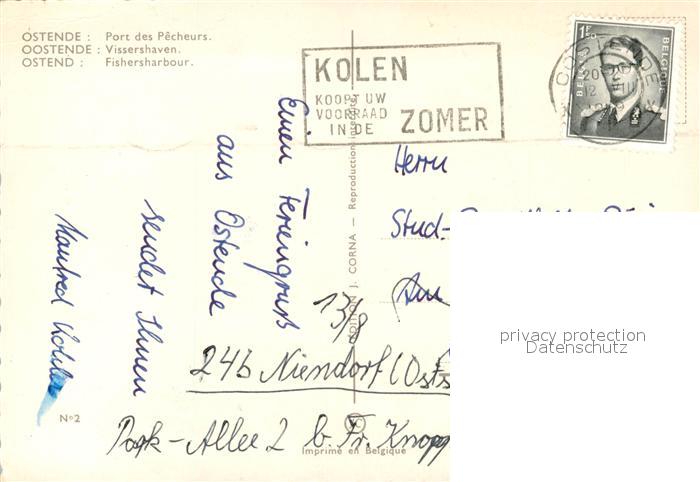 OSTENDE : Port des Pêcheurs.
OOSTENDE : Vissershaven.
OSTEND : Fishersharbour.
KOLEN
KOOPT UW
VOORRAAD
IN DE ZOMER
1F50
BELGIE BELGIQUE
OOSTENDE
Einen Feriengruß
aus Ostende
sendet Ihnen
Manfred
EDITION J. CORNA — Reproduction interdite
Herrn
Stud-
Am
13/8
24b Niendorf (Osts
Park-Allee 2 b. Fr. Knopp
Nº2
Imprimé en Belgique
privacy protection
Datenschutz